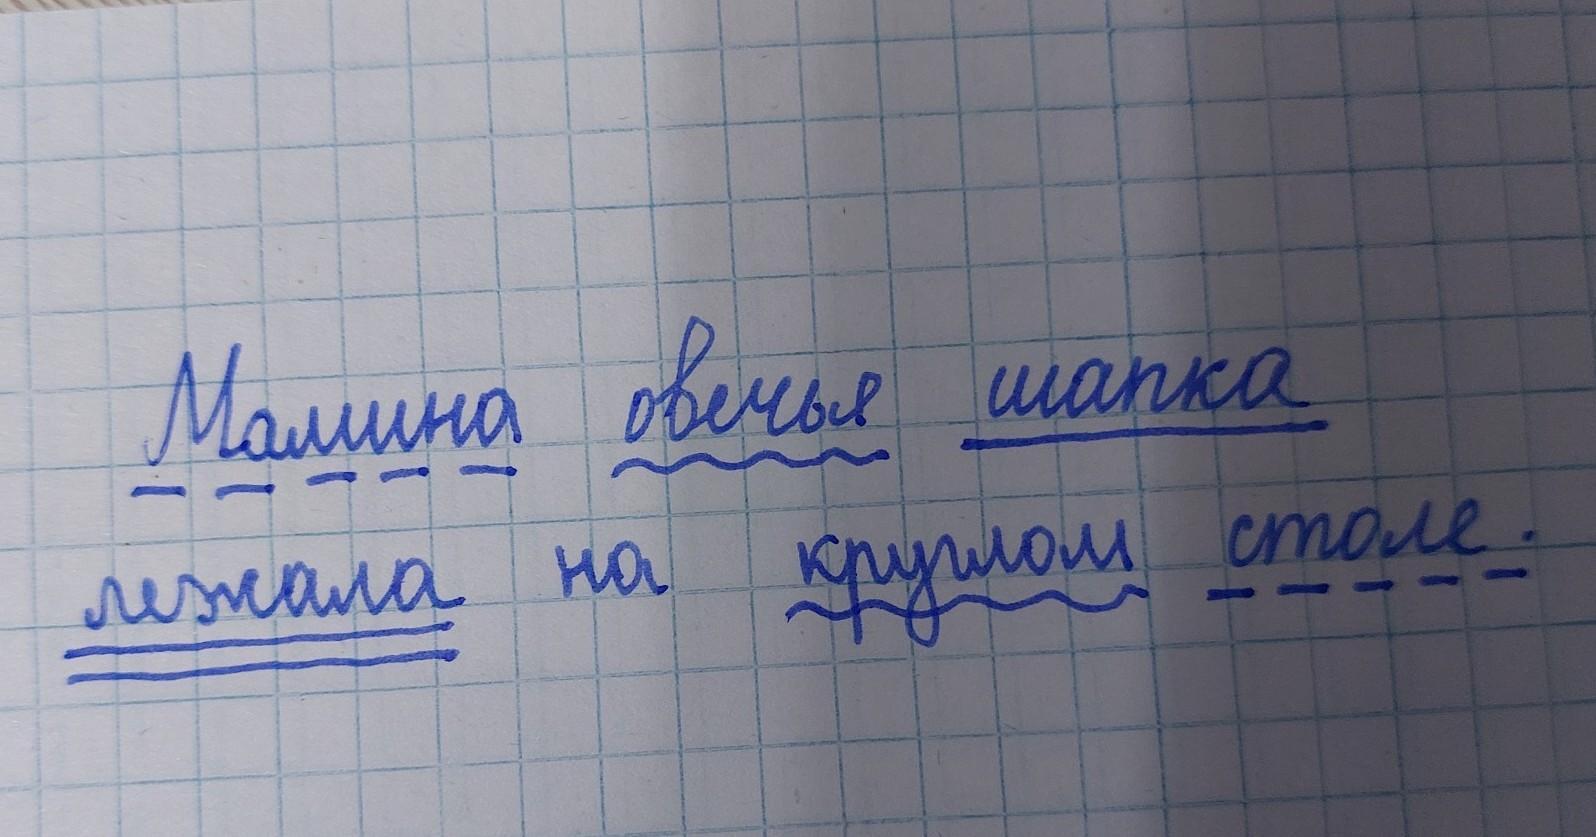 Мамина овечья шапка
лежала на круглом столе.